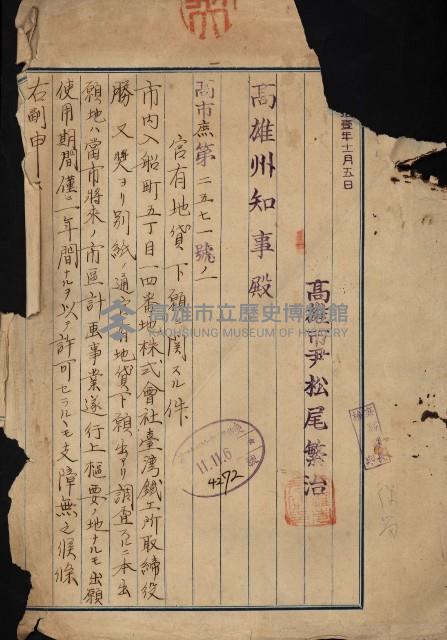 壹年十一月五日
高雄市尹松尾繁治
高雄州知事殿
高市庶第二五七一號ノ一
官有地貸下願ニ關スル件
市内入船町五丁目一四番地株式會社臺灣鐵工所取締役
勝又奬ヨリ別紙ノ通官有地貸下願出有リ調査スルニ本出
願地ハ當市將來ノ市區計畫事業遂行上樞要ノ地ナルモ出願
使用期間僅ニ一年間ナルヲ以テ許可セラルヽモ支障無之候條
右副申
11.11.6
4272
高雄市立歷史博物館
KAOHSIUNG MUSEUM OF HISTORY